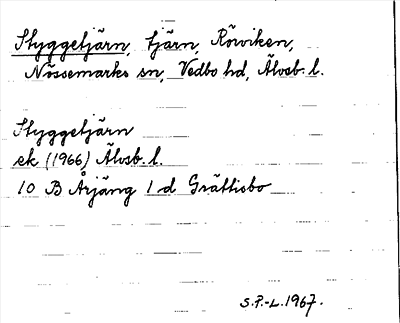 Styggetjärn, tjärn, Rörviken,
Nössemarks sn, Vedbo hd, Älvsb. l.
Styggetjärn
ek (1966) Älvsb. l.
10 B Årjäng 1 d Grättisbo
S.P.-L. 1967.